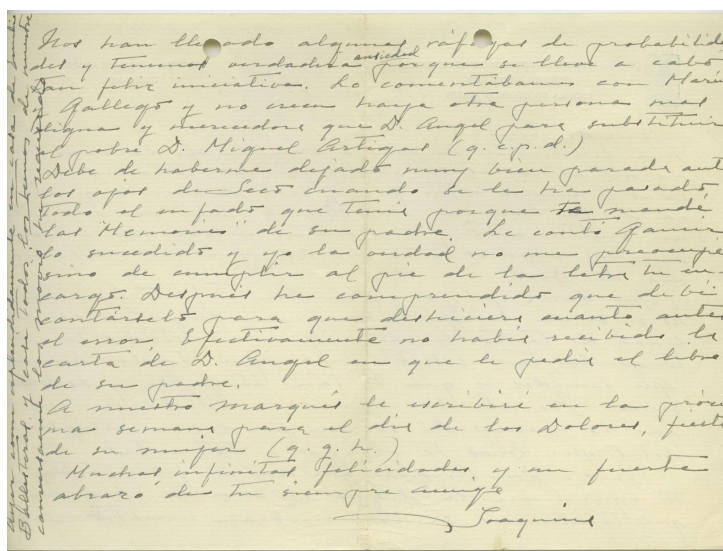 Nos han llegado algunas ráfagas de probabilida
des y tenemos verdadera ansiedad porque se lleve a cabo
tan feliz iniciativa. Lo comentábamos con Marin
y Gallego y no creen haya otra persona mas
digna y merecedora que D. Angel para substituir
al pobre D. Miguel Artigas (q.e.p.d.)
Debe de haberme dejado muy bien parada ante
los ojos de Seco cuando se le ha pasado
todo el enfado que tenia porque mandé
las "Memorias" de su padre. Le contó
lo sucedido y yo la verdad no me preocupé
sino de cumplir al pie de la letra tu en
cargo. Después he comprendido que debí
contárselo para que deshiciera cuanto antes
el error. Efectivamente no habia recibido la
carta de D. Angel en que le pedia el libro
de su padre.
A nuestro marqués le escribiré en la próxi
ma semana para el dia de los Dolores, fiesta
de su mujer (q.g.h.)
Muchas infinitas felicidades y un fuerte
abrazo de tu siempre amiga
Joaquina
Ayer comi esplendidamente en casa de
Ballesteros y casi todos los temas de nuestra
conversación los movió tu recuerdo